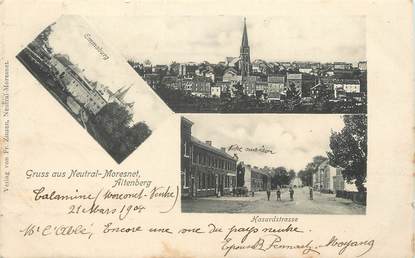 Emmaburg
Verlag von Fr. Zimmer, Neutral-Moresnet.
Gruss aus Neutral-Moresnet,
Altenberg
Hasardstrasse
Calamine (Moresnet-Neutre)
21 Mars 1904
Mr l'Abbé, Encore une vue du pays neutre.